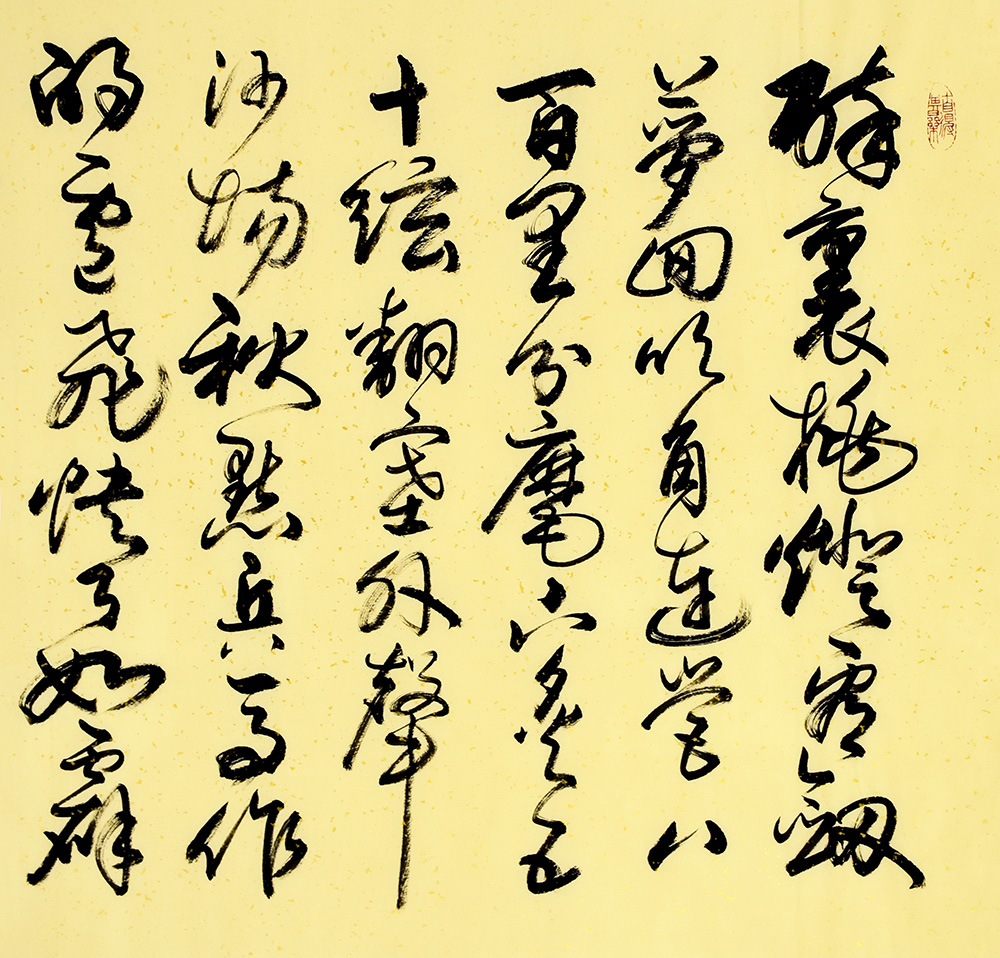 醉裏挑燈看劍
夢回吹角連營八
百里分麾下炙五
十絃翻塞外聲
沙場秋點兵馬作
的盧飛快弓如霹